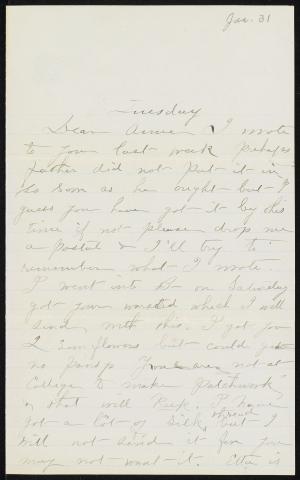 Jan. 31
Tuesday
Dear Annie, I wrote
to you last week perhaps
father did not put it in
so soon as he ought but I
guess you have got it by this
time if not please drop me
a postal & I'll try to
remember what I wrote.
I went into B- on Saturday
got your worsted which I will
send with this. I got you
2 sunflowers but could get
no pansy You are not at
College to make Patchwork
& that will keep. I have
got a lot of silk thread but I
will not send it for you
may not want it. Etta is